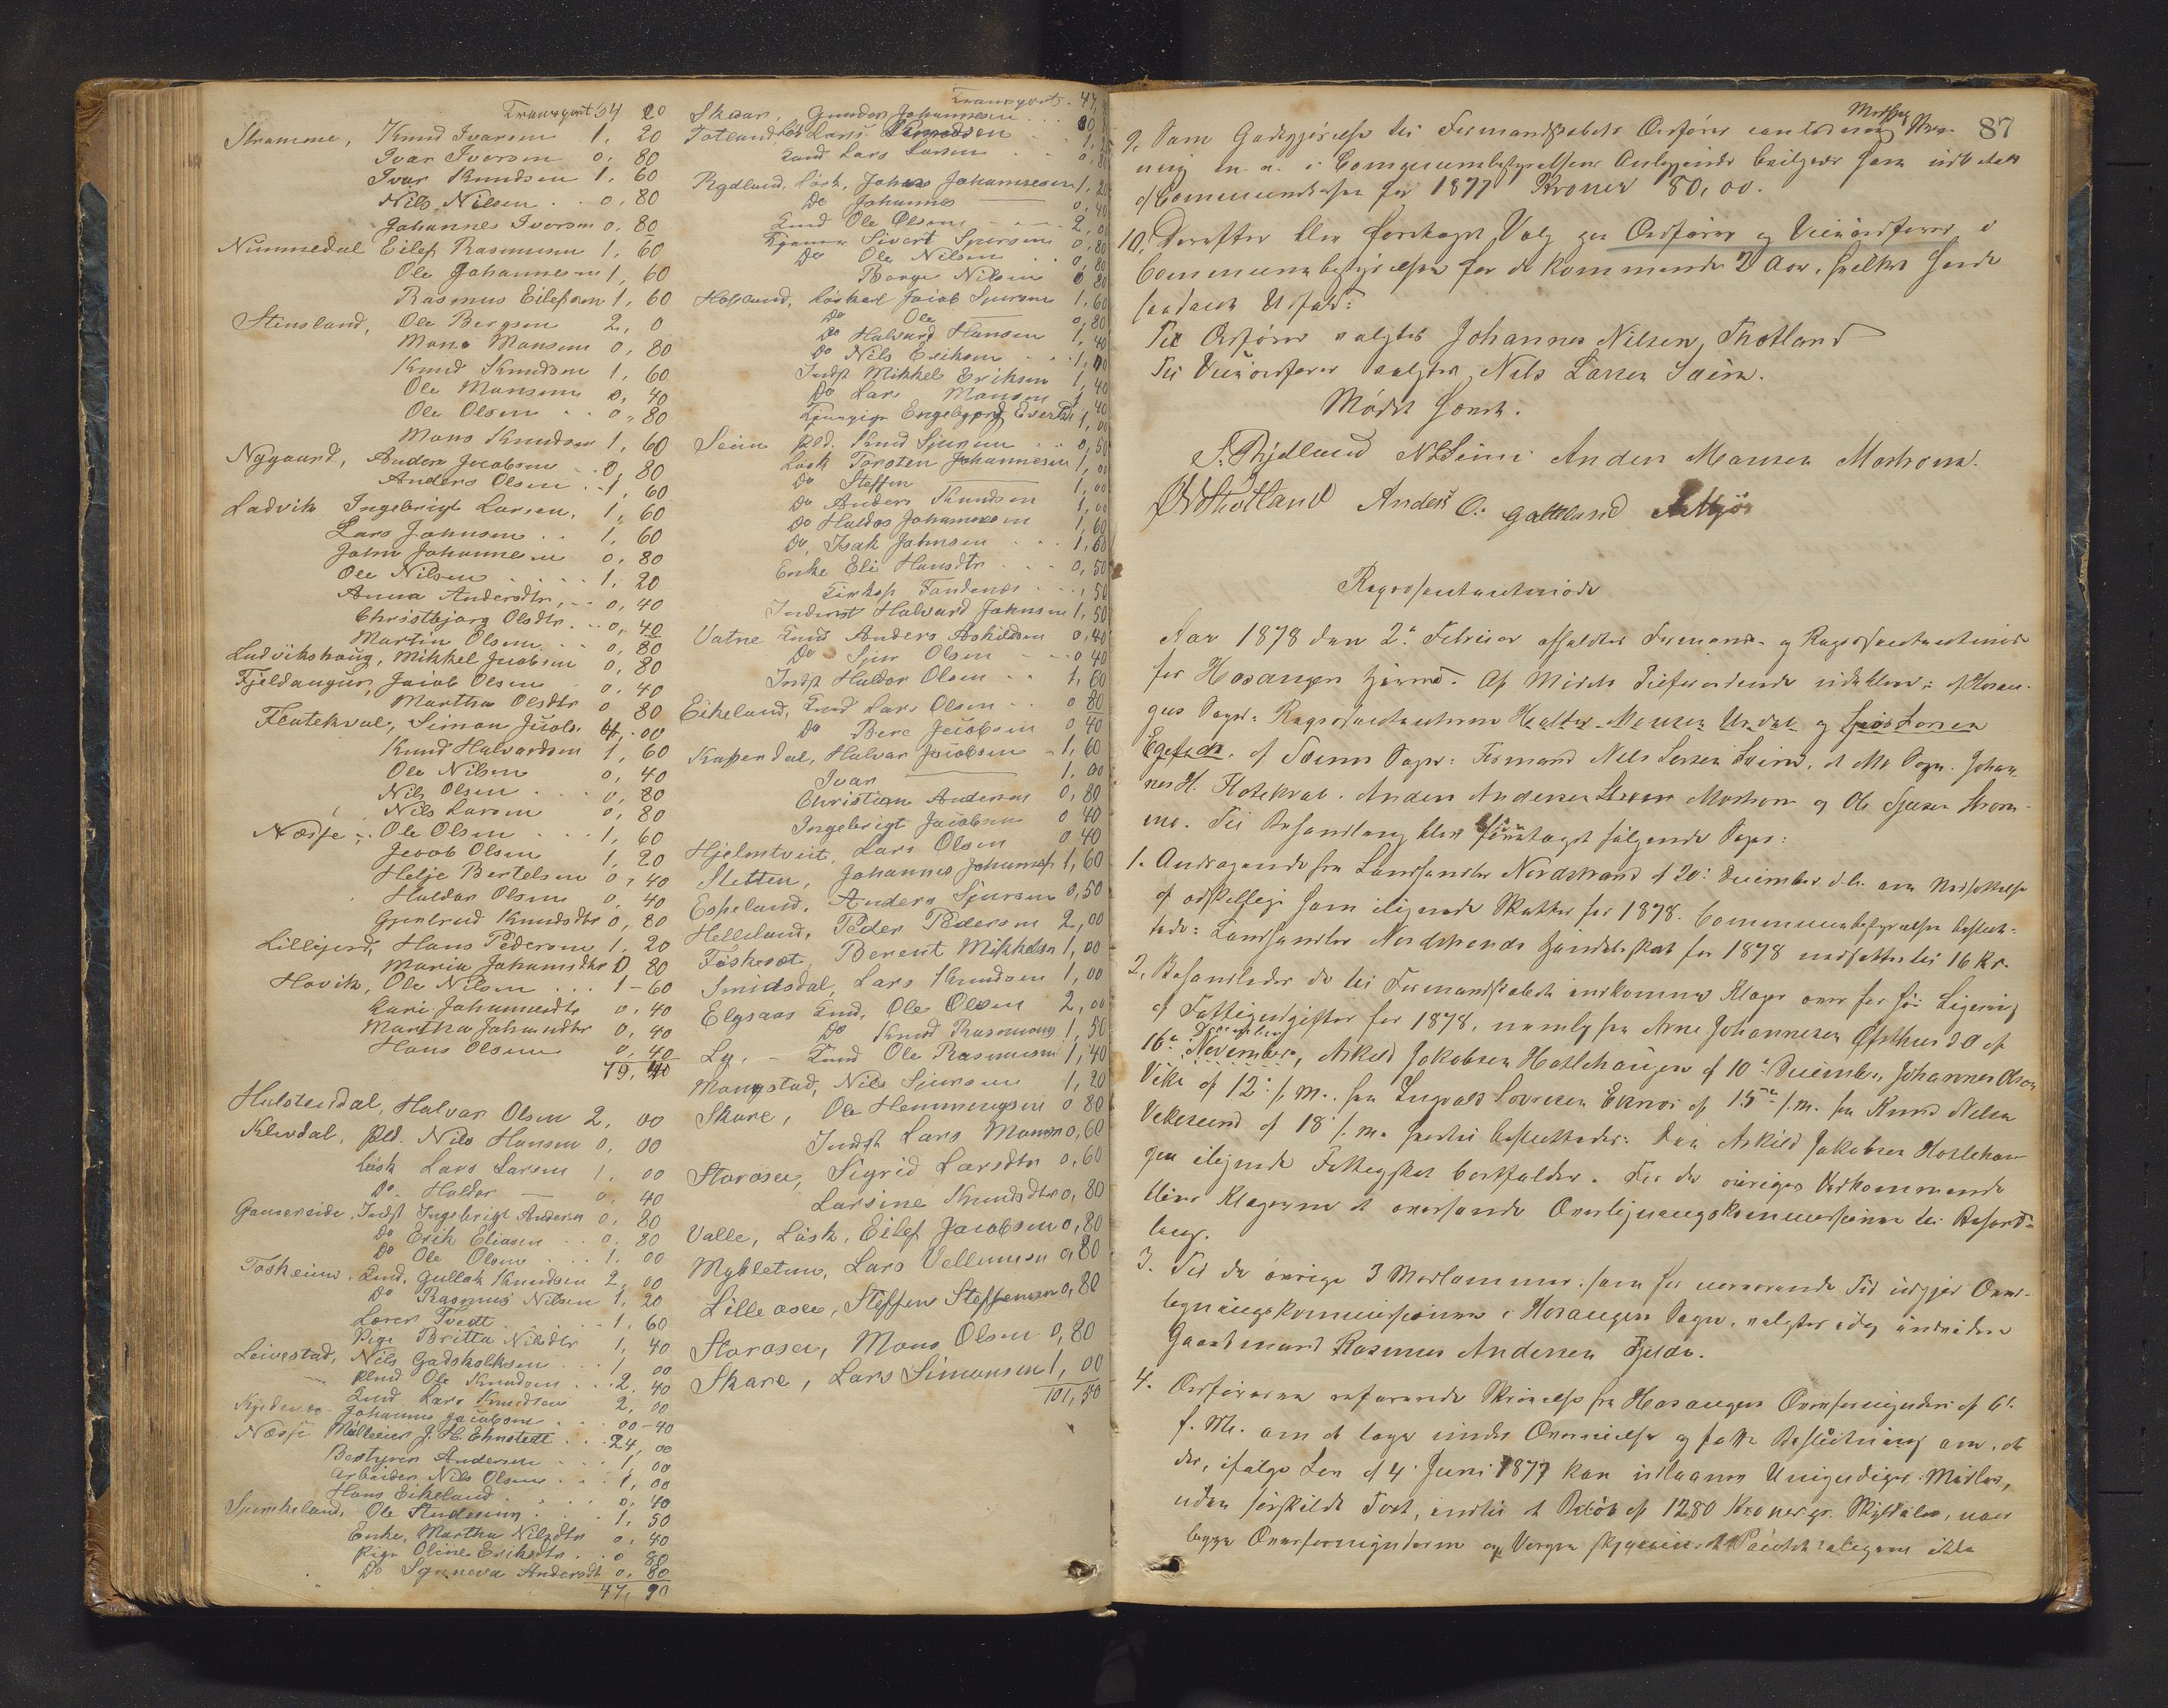 Transport 34 20
Stramme, Knud Ivarsen 1, 20
Ivar Iversen 0, 80
Ivar Knudsen 1, 60
Nils Nilsen 0, 80
Johannes Iversen 0, 80
Nummedal Eilef Rasmusen 1, 60
Ole Johannesen 1, 60
Rasmus Eilefsen 1, 60
Stensland, Ole Bergsen 2, 0
Mons Monsen 0, 80
Knud Knudsen 1, 60
Ole Monsen 0, 40
Ole Olsen 0, 80
Mons Knudsen 1, 60
Nygaard, Anders Jacobsen 0, 80
Anders Olsen 1, 60
Ladvik Ingebrigt Larsen, 1, 60
Lars Johnsen 1, 60
John Johannesen 0, 80
Ole Nilsen 1, 20
Anna Andersdtr, 0, 40
Christbjørg Olsdtr. 0, 40
Martin Olsen 0, 80
Ludvikshaug, Mikkel Jacobsen 0, 80
Fjeldanger, Jacob Olsen 0, 40
Martha Olsdtr 0 80
Flatekval, Simon Jacobs. 4, 00
Knud Halvardsen 1, 60
Ole Nilsen 0, 40
Nils Olsen 0, 80
Nils Larsen 0, 80
Næsse, Ole Olsen 1, 60
Jacob Olsen 1, 20
Helje Bertelsen 0, 40
Haldor Olsen 0, 40
Gjertrud Knudsdtr 0, 80
Lillejord, Hans Pedersen 1, 20
Maria Johansdtr 0, 80
Hovik, Ole Nilsen 1-60
Kari Johannesdtr 0, 40
Martha Johansdtr 0, 40
Hans Olsen 0, 40
79, 40
Halstendal, Halvar Olsen 2, 00
Klevdal, Pld. Nils Hansen 0, 00
Løsk Lars Larsen 1, 00
Do Haldor — 0, 40
Indst Ingebrigt Andersen 0, 80
Do Erik Eliasen 0, 80
Do Ole Olsen 1, 00
Toskeim, Gmd. Gullak Knudsen 2, 00
Do Rasmus Nilsen 1, 20
Lærer Tvedt 1, 60
Pige Britta Nilsdtr 1, 40
Leivestad, Nils Godskalksen 1, 00
Plmd Ole Knudsen 2, 40
Gmd Lars Knudsen 2, 00
Johannes Jacobsen 00-40
Næsse Mølleeier J. H. Ehnstedt 24, 00
Bestyrer Andersen 1, 00
Arbeider Nils Olsen 1, 00
Hans Eikeland 0, 40
Ole Andersen 1, 50
Enke, Martha Nilsdtr 0, 40
Pige Oline Eriksdtr 0 80
Do Synneva Andersdt 0, 80
47, 90
Transport 47,
Skaar, Gunder Johannesen
Totland, Løs Lars
Gmd Lars Larsen 0, 80
Rydland, Løsk, Johans Johannesen 1, 20
Do Johannes — 0, 40
Gmd Ole Olsen 2, 0
Sivert Sjursen 0, 80
Do Ole Nilsen 0, 80
Børge Nilsen 0 80
Hopland, Løskarl Jacob Sjursen 1, 60
Do Ole — 0, 80
Do Halvard Hansen 1, 40
Do Nils Eriksen 1, 00
Indst Mikkel Eriksen 1, 40
Do Lars Monsen 1, 40
Engebgorg 1, 00
Seim Pld. Knud Sjursen 0, 50
Løsk Torsten Johannesen 1, 00
Do Steffen — 1, 00
Do Anders Knudsen 1, 00
Do Haldor Johannesen 1, 60
Do, Isak Johnsen 1, 60
Enke Eli Hansdtr 0, 50
Tandenes , 50
Inderst Halvard Johnsen 1, 50
Vatne Gmd Anders Askildsen 0, 40
Do Sjur Olsen 0 40
Indst Haldor Olsen 1, 60
Eikeland, Gmd Lars Olsen 0 80
Do Bere Jacobsen 0 40
Kaperdal, Halvar Jacobsen 1, 60
Ivar — 1, 00
Christian Andersen 0, 80
Ingebrigt Jacobsen 0 40
Hjelmtveit, Lars Olsen 0 40
Sletten, Johannes Johannes 1, 60
Espeland, Anders Sjursen 0, 50
Helleland, Peder Pedersen 2, 00
Toskesæt, Berent Mikkelsen 1, 00
Smidsdal, Lars Knudsen 1, 00
Elysaas Gmd. Ole Olsen 2, 00
Do Knud Rasmusen 1, 50
Ly, - Gmd Ole Rasmusen 1, 40
Mongstad, Nils Sjursen 1, 20
Skare, Ole Hemmingsen 0 80
Indst Lars Monsen 0, 60
Storaser, Sigrid Larsdtr 0, 60
Larsine Knudsdtr 0, 80
Valle, Løsk, Eilef Jacobsen 0, 80
Mykletun, Lars Vellumsen 0, 80
Lilleaser, Steffen Steffensen 0, 80
Storaser, Mons Olsen 0, 80
Skare, Lars Simonsen 1, 00
101, 50
87
9, Som Godtgjørelse til Formandskabets Ordfører
m. a. i Communebestyrelsens Anliggende bevilgedes ham udbetalt
af Communekassen for 1877 Kroner 80,00.
10, Derefter blev foretaget Valg paa Ordfører og Viceordfører i
Communebestyrelsen for de kommende 2 Aar, hvilket havde
saadant Udfald:
Til Ordfører valgtes Johannes Nilsen, Thotland
Til Viceordfører valgtes Nils Larsen Seim.
Mødet hævet.
S. Rydland N. L. Seim Anders Monsen Mostrom.
J. N. Thotland Anders O. Gotteland
Repræsentantmøde
Aar 1878 den 2n Februar afholdtes Formands- og Repræsentantmøde
for Hosanger Herred. Af Mødets Tilstedeværende udeblev: af Hosan-
gers Sogn: Repræsentanterne Mansen Undal og Larsen
af Seims Sogn: Formand Nils Larsen Seim, af Mo Sogn. Johan-
nes H. Flatekval. Anders Andersen Mostrom og Ole Sjursen Strom-
me. Til Behandling blev foretaget følgende Sager:
1. Andragende fra Landhandler Nordstrand af 20. December d. A. om Nedsættelse
af ham ilignede Skatter for 1878. Communebestyrelsen beslut-
tede: Landhandler Nordstrands Handelsskat for 1878 nedsættes til 16 Kr.
2, Behandledes de til Formandskabet indkomne Klager over for høi Ligning
af Fattigudgifter for 1878, nemlig fra Arne Johannesen Østhus d.d. af
16n December, Askild Jakobsen Hatlehaugen af 10n December, Johannes Olsen
Vike af 12n s. m. fra Ingvald af 15n s. m. fra Knud Nilsen
af 18 s. m. hvortil besluttedes: Den Askild Jakobsen Hatlehau-
gen ilignede Fattigskat bortfalder. For de øvriges Vedkommende
bliver Klagerne at oversende Overligningskommissionen til Behand-
ling.
3. Til de øvrige 3 Medlemmer, som for nærværende Tid udgjør Over-
ligningskommissionen i Hosangers Sogn, valgtes idag
Gaardmand Rasmus Andersen Fjelde.
4. Ordføreren refererede Skrivelse fra Hosangers Overformynderi af 6te
f. M. om at tage under Overveielse og fatte Beslutning om, at
der, ifølge Lov af 4. Juni 1877 kan udlaanes Umyndiges Midler,
uden særskildt Taxt, indtil et Beløb af 1280 Kroner pr. Skylddaler, naar
begge Overformynderne og Vergen